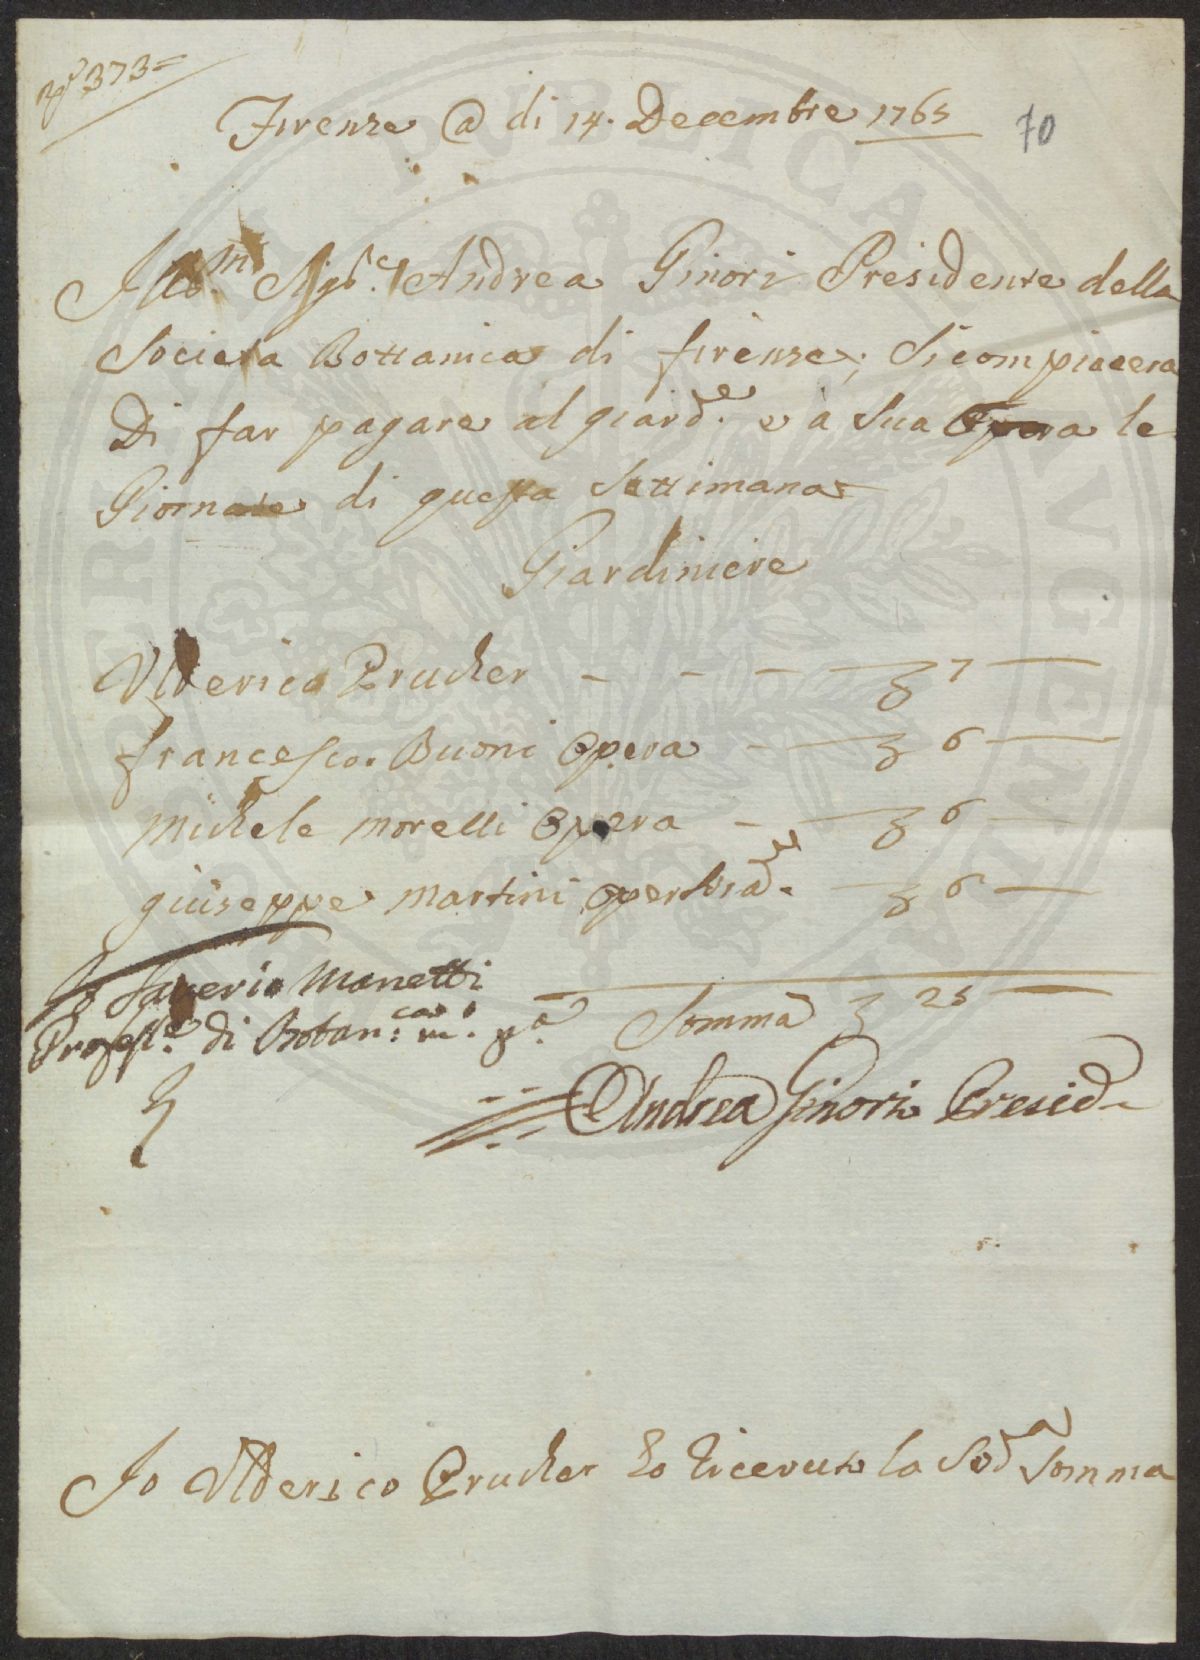 N° 373=
Firenze @ di 14. Decembre 1765
70
Ill.mo Sig.re Andrea Ginori Presidente della
Societa Bottanica di firenze; Si compiacera
Di far pagare al giard.e e à sua Opera le
Giornate di questa Settimana
Giardiniere
Ulderico Prucher - - - 7
francesco Buoni Opera - 6
Michele Morelli Opera - 6
giuseppe Martini 6
Io Saverio Manetti
Profess.e di Botan.ca m. p.a
Somma 25
Andrea Ginori Presid.
Io Ulderico Prucher ho riceuto la Sod.a Somma